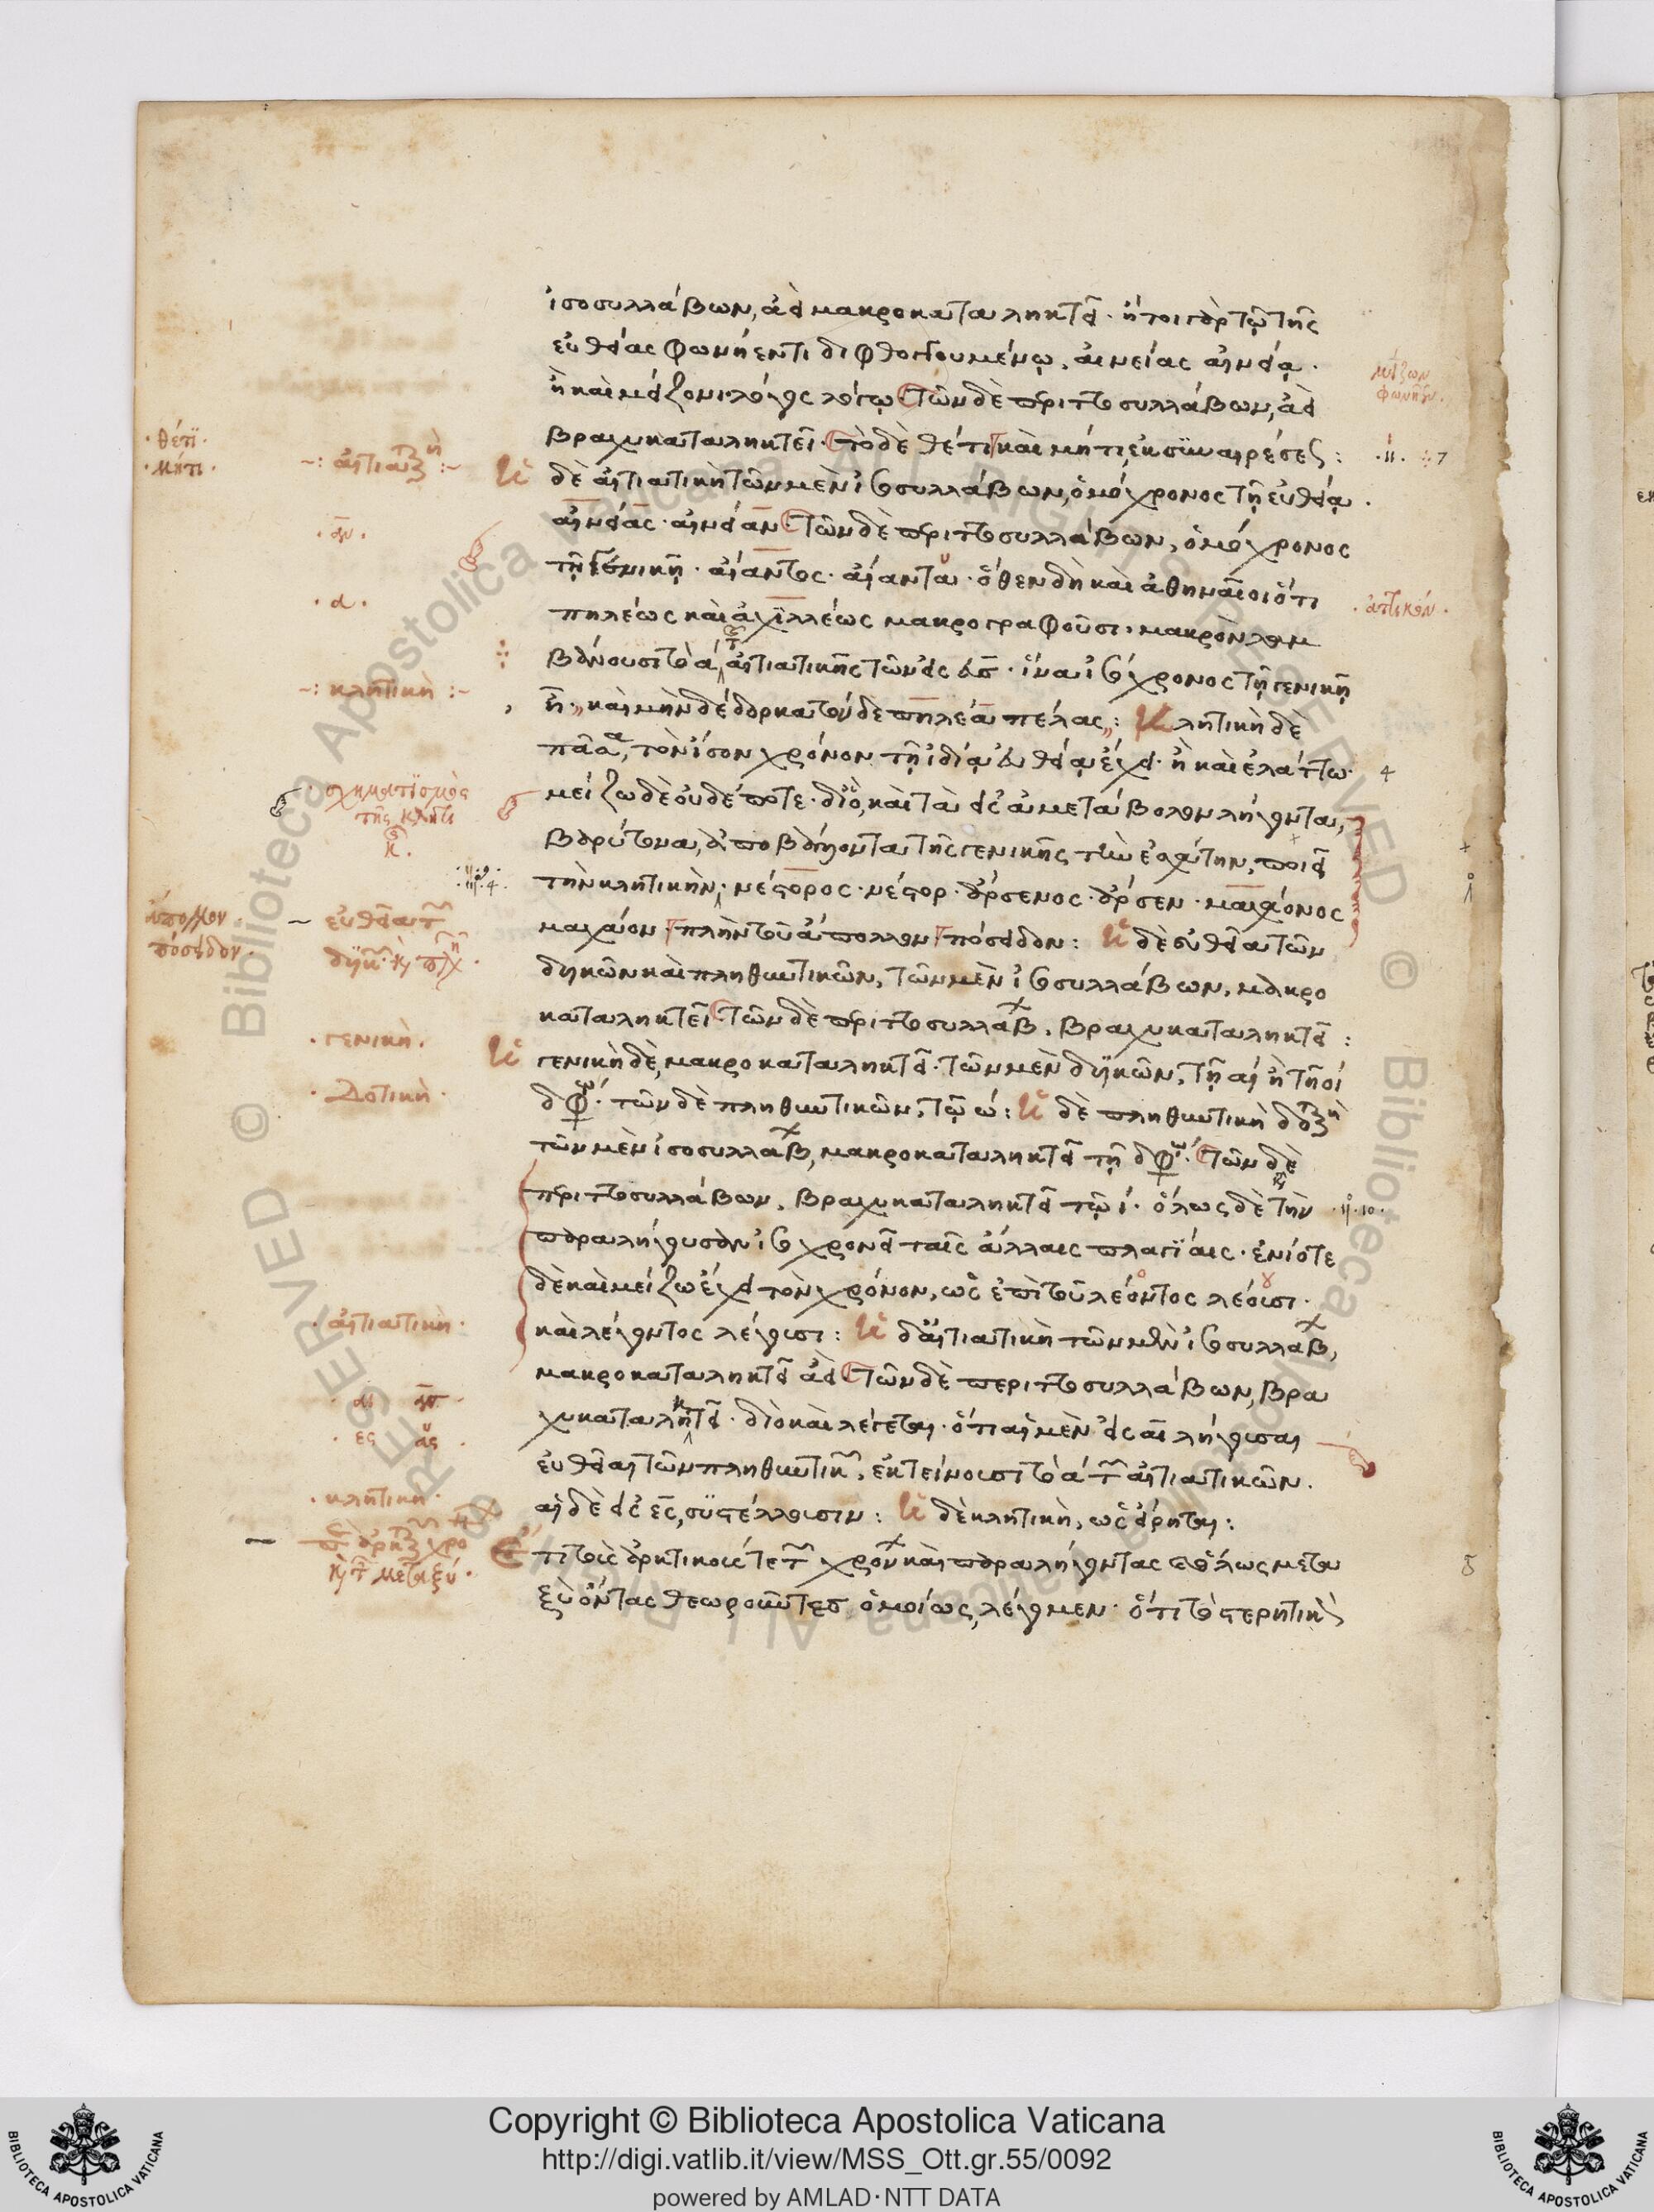 ἰσοσυλλάβων, ἀεὶ μακροκαταληκτεῖ· ἤτοι γὰρ τῷ τῆς
εὐθείας φωνήεντι διφθογγουμένῳ, αἰνείας αἰνείᾳ·
ἢ καὶ μείζονι λόγος λόγῳ· τῶν δὲ περιττοσυλλάβων, ἀεὶ
βραχυκαταληκτεῖ· τὸ δὲ θέτι καὶ μήτι, ἐκ συναιρέσεως:
Ἡ δὲ αἰτιατικὴ τῶν μὲν ἰσοσυλλάβων, ὁμόχρονος τῇ εὐθείᾳ.
αἰνείας· αἰνείαν· τῶν δὲ περιττοσυλλάβων, ὁμόχρονος
τῇ γενικῇ· αἴαντος· αἴαντα· ὅθεν δὴ καὶ ἀθηναῖοι ὅτι
πηλέως καὶ ἀχιλλέως μακρογραφοῦσι, μακρὸν λαμ
βάνουσι τὸ α τῆς αἰτιατικῆς τῶν εἰς ευς· ἵνα ἰσόχρονος τῇ γενικῇ
ᾖ· καὶ μὴν δέδορκα τόνδε πηλέα πέλας: Κλητικὴ δὲ
πᾶσα, τὸν ἴσον χρόνον τῇ ἰδίᾳ εὐθείᾳ ἔχει· ἢ καὶ ἐλάττω·
μείζω δὲ οὐδέποτε· διὸ, καὶ τὰ εἰς ἀμετάβολον λήγοντα,
βαρύτονα, ἀποβάλλοντα τῆς γενικῆς τὴν ἐσχάτην, ποιεῖ
τὴν κλητικὴν· νέστορος· νέστορ· ἄρσενος· ἄρσεν· μαχάονος
μαχάον πλὴν τοῦ ἄπολλον πόσειδον: Ἡ δὲ εὐθεῖα τῶν
δυϊκῶν καὶ πληθυντικῶν, τῶν μὲν ἰσοσυλλάβων, μακρο
καταληκτεῖ· τῶν δὲ περιττοσυλλάβ, βραχυκαταληκτεῖ:
Ἡ γενικὴ δὲ, μακροκαταληκτεῖ· τῶν μὲν δυϊκῶν, τῇ αι ἢ τῇ οι
διφ· τῶν δὲ πληθυντικῶν, τῷ ω: Ἡ δὲ πληθυντικὴ δοτικὴ
τῶν μὲν ἰσοσυλλάβ, μακροκαταληκτεῖ τῇ διφ· τῶν δὲ
περιττοσυλλάβων, βραχυκαταληκτεῖ τῷ ι· ὅλως δὲ τὴν
παραλήγουσαν ἰσοχρονεῖ ταῖς ἄλλαις πλαγίαις· ἐνίοτε
δὲ καὶ μείζω ἔχει τὸν χρόνον, ὡς ἐπὶ τοῦ λέοντος λέουσι·
καὶ λέγοντος λέγουσι: Ἡ δ' αἰτιατικὴ τῶν μὲν ἰσοσυλλάβ,
μακροκαταληκτεῖ ἀεὶ· τῶν δὲ περιττοσυλλάβων, βρα
χυκαταληκτεῖ· διὸ καὶ λέγεται· ὅτι αἱ μὲν εἰς αι λήγουσαι
εὐθεῖαι τῶν πληθυντικῶν, ἐκτείνουσι τὸ α τῶν αἰτιατικῶν.
αἱ δὲ εἰς ες, συστέλλουσιν: Ἡ δὲ κλητικὴ, ὡς εἴρηται:
Ἔτι τοῖς ἀρκτικοῖς τε τῶν χρόν καὶ παραλήγοντας καὶ ὅλως μετα
ξὺ ὄντας θεωροῦντες ὁμοίως, λέγομεν· ὅτι τὸ στερητικὸν
·θέτι·
·μήτι·
-: αἰτιατικὴ :-
·α·
-: κλητικὴ :-
·σχηματισμὸς
τῆς κλητι
κ·
ἄπολλον·
πόσειδον·
εὐθεῖα τῶν
·γενικὴ.
·Δοτικὴ·
·αἰτιατικὴ·
·αι
·ες ας·
·κλητικὴ·
μεταξύ·
μείζων
φωνῆεν.
·ἀττικόν·
Copyright © Biblioteca Apostolica Vaticana
http://digi.vatlib.it/view/MSS_Ott.gr.55/0092
powered by AMLAD·NTT DATA
BIBLIOTECA APOSTOLICA VATICANA
BIBLIOTECA APOSTOLICA VATICANA